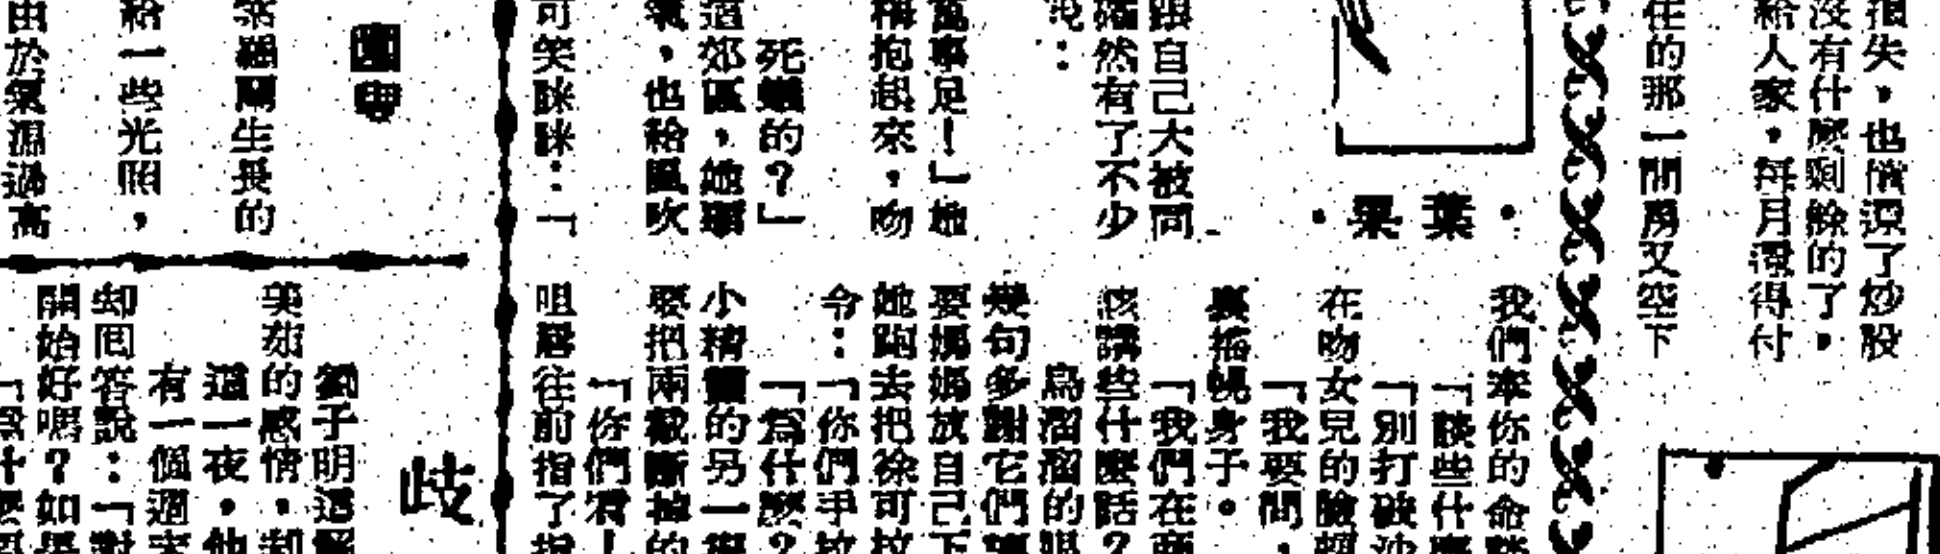 損失，也償還了炒股
沒有什麼剩餘的了，
給人家，每月還得付
住的那一間房又空下
·葉果·
跟自己大被同
然有了不少
說：
萬事足！」她
抱起來，吻
死的？」
這郊區，她
氣，也給風吹
可笑眯眯：「
生長的
給一些光照，
由於氣溫過高
我們本你的命
「談些什麼
「別打破沙
在吻女兒的臉頰
「我要問，
裏搖幌身子。
「我們在商
該講些什麼話？
烏溜溜的眼
幾句多謝它們讓
要媽媽放自己下
她跑去把徐可拉
令：「你們手拉
「為什麼？
小精靈的另一場
要把兩截斷掉的
「你們看！
咀唇往前指了指
歧
劉子明這
芙茹的感情，却
這一夜，他
有一個週末
却回答說：「對
開始好嗎？如果
「為什麼